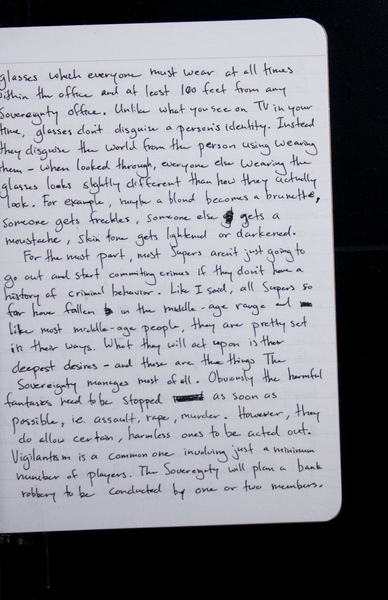 glasses which everyone must wear at all times
within the office and at least 100 feet from any
Sovereignty office. Unlike what you see on TV in your
time, glasses don't disguise a person's identity. Instead
they disguise the world from the person using wearing
them - when looked through, everyone else wearing the
glasses looks slightly different than how they actually
look. For example, maybe a blond becomes a brunette,
someone gets freckles, someone else gets a
moustache, skin tone gets lightened or darkened.
For the most part, most Supers aren't just going to
go out and start commiting crimes if they don't have a
history of criminal behavior. Like I said, all Supers so
far have fallen in the middle-age range and
like most middle-age people, they are pretty set
in their ways. What they will act upon is their
deepest desires - and these are the things The
Sovereignty manages most of all. Obviously the harmful
fantasies need to be stopped as soon as
possible, ie. assault, rape, murder. However, they
do allow certain, harmless ones to be acted out.
Vigilantism is a common one involving just a minimum
number of players. The Sovereignty will plan a bank
robbery to be conducted by one or two members.